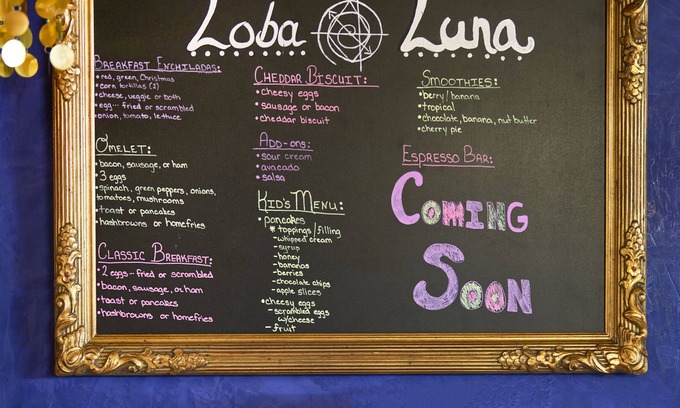 Loba Luna
Breakfast Enchiladas:
• red, green, Christmas
• corn tortillas (2)
• cheese, veggie or both
• egg... fried or scrambled
• onion, tomato, lettuce
Omelet:
• bacon, sausage, or ham
• 3 eggs
• spinach, green peppers, onions,
tomatoes, mushrooms
• toast or pancakes
• hashbrowns or homefries
Classic Breakfast:
• 2 eggs - fried or scrambled
• bacon, sausage, or ham
• toast or pancakes
• hashbrowns or homefries
Cheddar Biscuit:
• cheesy eggs
• sausage or bacon
• cheddar biscuit
Add-ons:
• sour cream
• avocado
• salsa
Kid's Menu:
• pancakes
* toppings/filling
- whipped cream
- syrup
- honey
- bananas
- berries
- chocolate chips
- apple slices
• cheesy eggs
- scrambled eggs
w/cheese
- fruit
Smoothies:
• berry/banana
• tropical
• chocolate, banana, nut butter
• cherry pie
Espresso Bar:
Coming
Soon